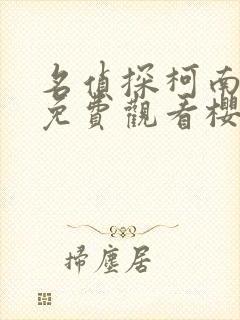 名偵探柯南
免費觀看櫻
掃塵居